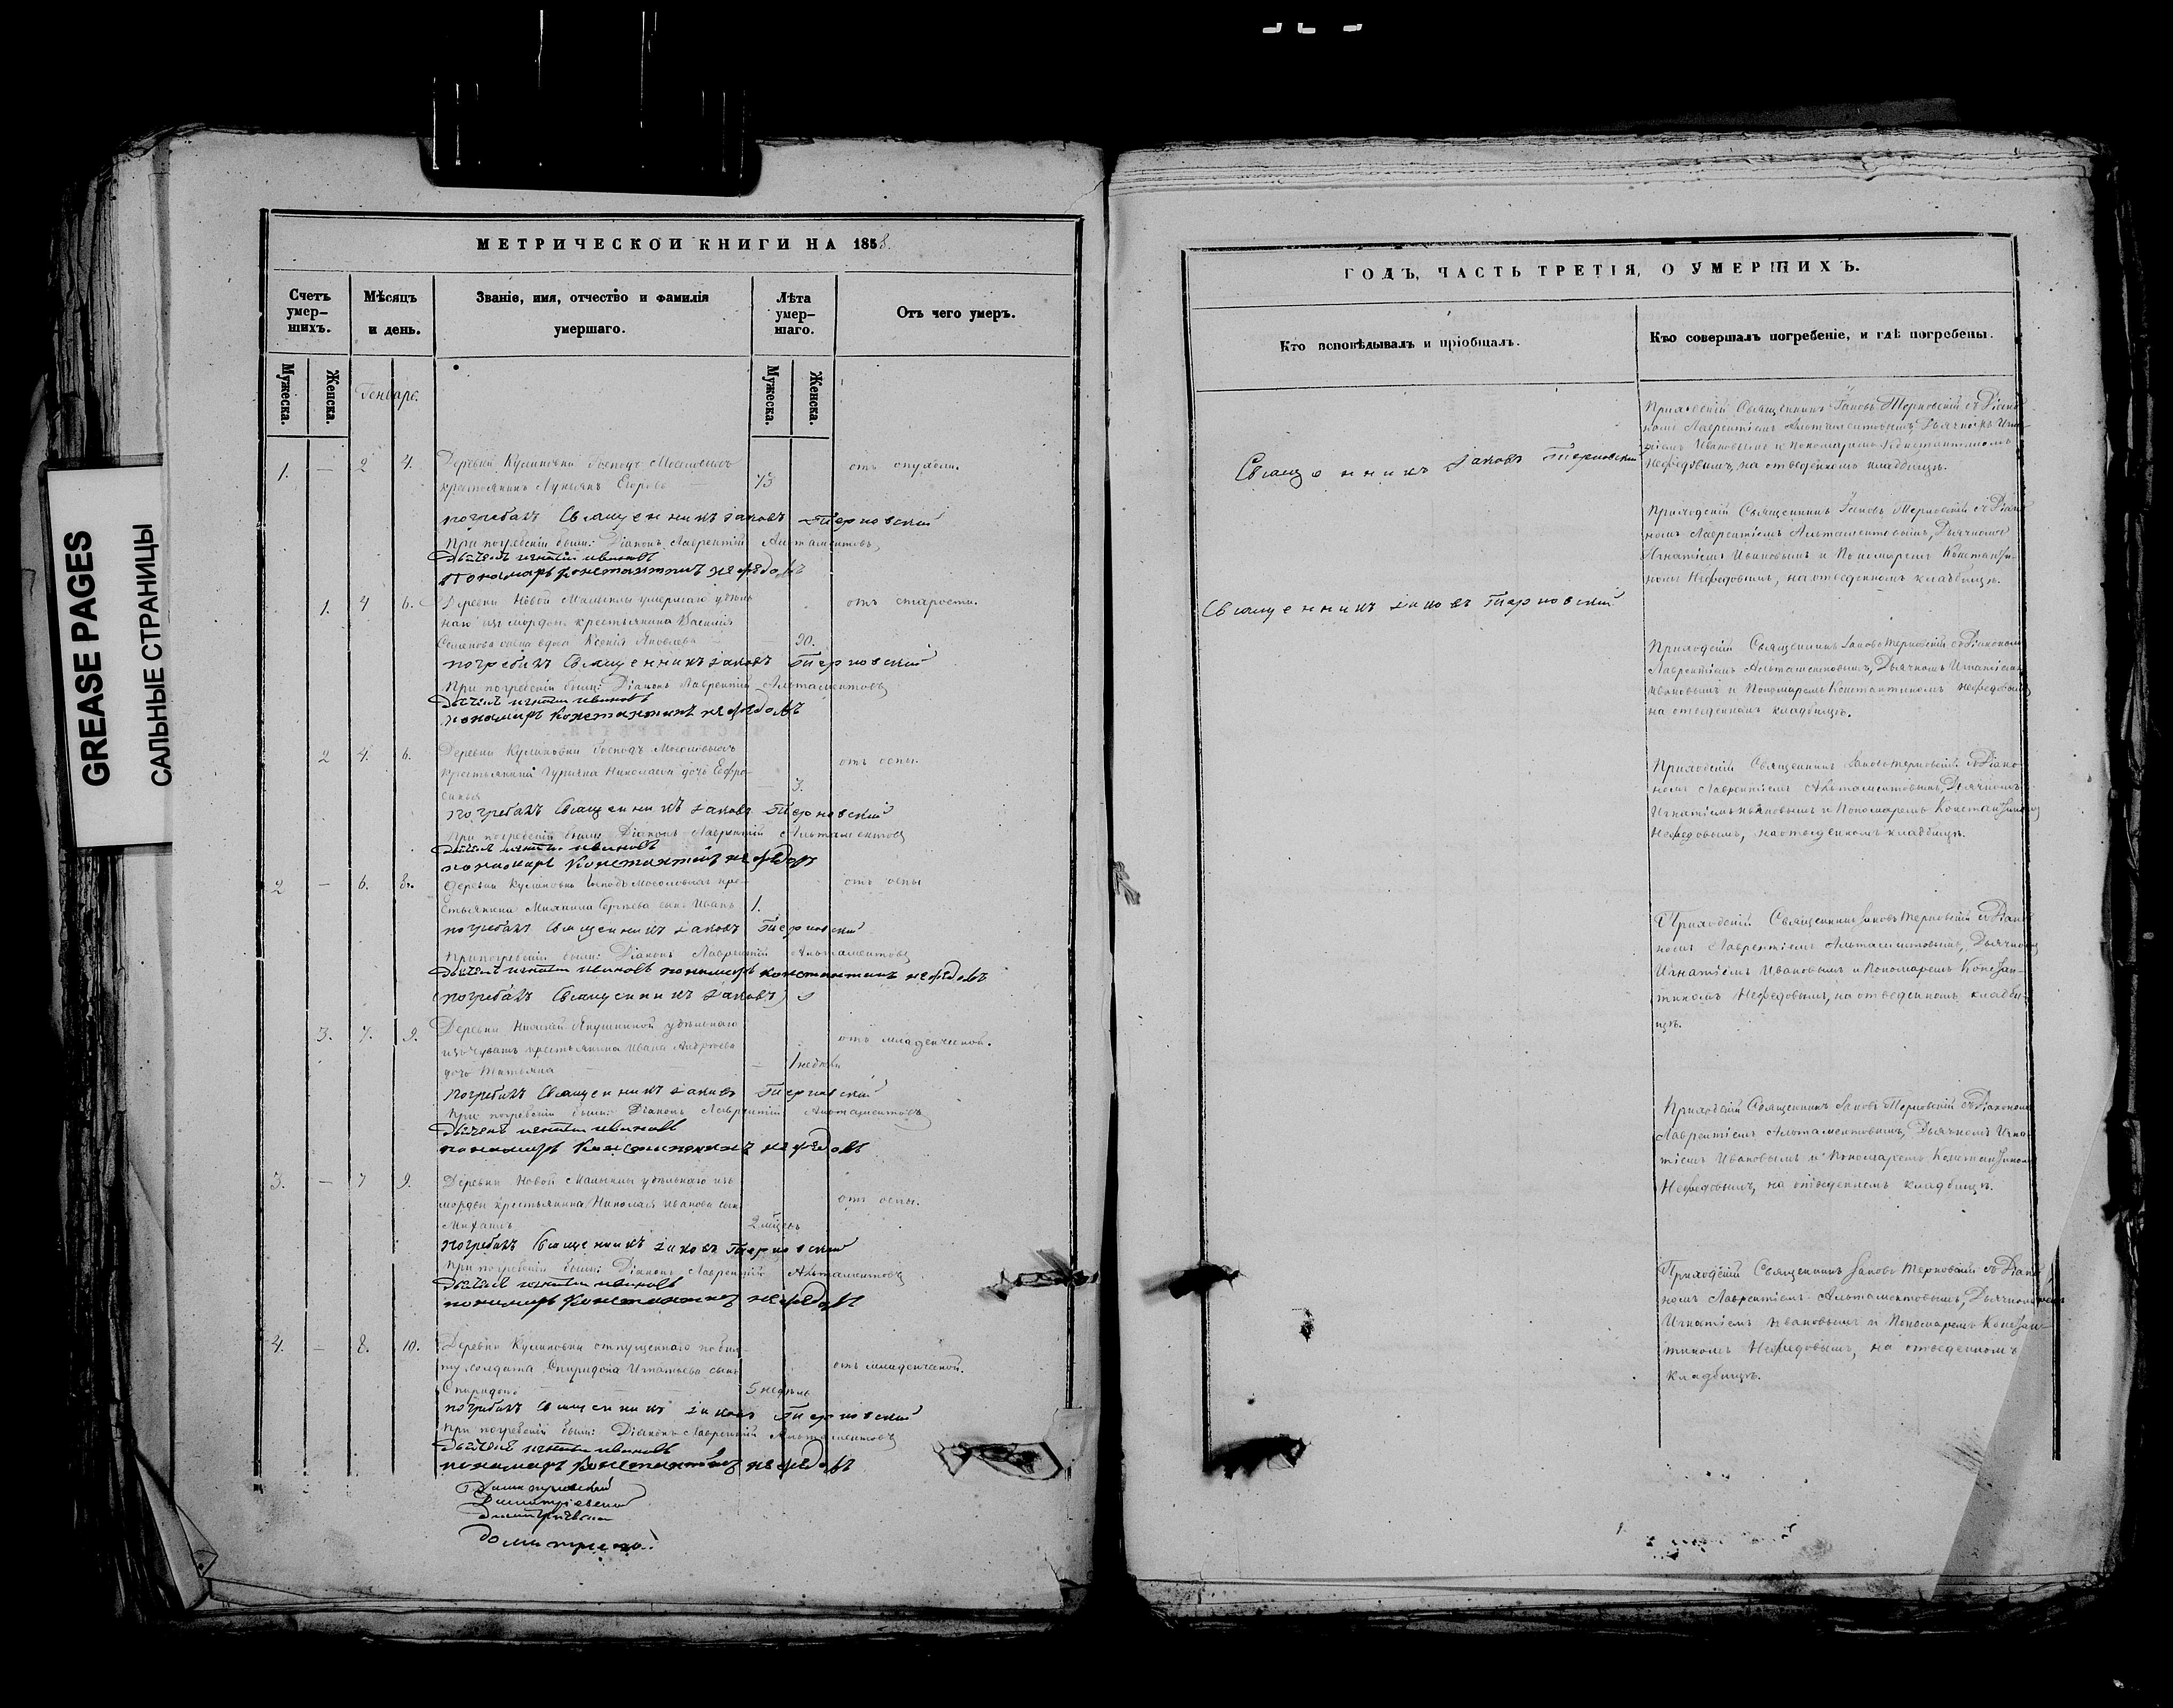 GREASE PAGES
САЛЬНЫЕ СТРАНИЦЫ
МЕТРИЧЕСКОЙ КНИГИ НА 1858.
Счетъ умер-
шихъ.
Мѣсяцъ
и день.
Званіе, имя, отчество и фамилія
умершаго.
Лѣта
умер-
шаго.
Отъ чего умеръ.
Мужеска.
Женска.
Мужеска.
Женска.
Генварь.
1. — 2 4. Деревни Куликовки Господъ
крестьянинъ Лукьянъ Егоровъ 73 отъ опухоли.
погребалъ Священникъ Іаковъ Терновскій
При погребеніи были: Діаконъ Лаврентій Альтаментовъ,
Дьячекъ Игнатій Ивановъ
Пономарь Константинъ Нефедовъ
1. 4 6. Деревни Новой Малыклы умершаго удѣль
наго изъ мордвы крестьянина Василія
вдова Ксенія Яковлева 90. отъ старости.
погребалъ Священникъ Іаковъ Терновскій
При погребеніи были: Діаконъ Лаврентій Альтаментовъ
Дьячекъ Игнатій Ивановъ
пономарь Константинъ Нефедовъ
2 4. 6. Деревни Куликовки Господъ
Крестьянина Николаева дочь Евфро-
синья 3. отъ оспы.
погребалъ Священникъ Іаковъ Терновскій
При погребеніи были: Діаконъ Лаврентій Альтаментовъ
Дьячекъ Игнатій Ивановъ
пономарь Константинъ Нефедовъ
2 — 6. 8. Деревни Куликовки Господъ кре-
стьянина Михаила Сергѣева сынъ Иванъ 1. отъ оспы
погребалъ Священникъ Іаковъ Терновскій
При погребеніи были: Діаконъ Лаврентій Альтаментовъ
Дьячекъ Игнатій Ивановъ пономарь Константинъ Нефедовъ
(погребалъ Священникъ Іаковъ)
3. 7. 9. Деревни Нижней Якушкиной удѣльнаго
изъ чувашъ крестьянина Ивана Андреева
дочь Татьяна — 1 недѣли отъ младенческой.
погребалъ Священникъ Іаковъ Терновскій
При погребеніи были: Діаконъ Лаврентій Альтаментовъ
Дьячекъ Игнатій Ивановъ
пономарь Константинъ Нефедовъ
3. — 7 9. Деревни Новой Малыклы удѣльнаго изъ
мордвы крестьянина Николая Иванова сынъ
Михаилъ 2 отъ оспы.
погребалъ Священникъ Іаковъ Терновскій
При погребеніи были: Діаконъ Лаврентій Альтаментовъ
Дьячекъ Игнатій Ивановъ
пономарь Константинъ Нефедовъ
4. — 8. 10. Деревни Куликовки отпущеннаго по биле-
ту солдата Спиридона Игнатьева сынъ
Спиридонъ 5 недѣль отъ младенческой.
погребалъ Священникъ Іаковъ Терновскій
При погребеніи были: Діаконъ Лаврентій Альтаментовъ
Дьячекъ Игнатій Ивановъ
пономарь Константинъ Нефедовъ
ГОДЪ, ЧАСТЬ ТРЕТІЯ, О УМЕРШИХЪ.
Кто исповѣдывалъ и пріобщалъ.
Кто совершалъ погребеніе, и гдѣ погребены.
Священникъ Іаковъ Терновскій
Священникъ Іаковъ Терновскій
Приходскій Священникъ Іаковъ Терновскій съ Діако-
номъ Лаврентіемъ Альтаментовымъ Дьячкомъ Игна-
тіемъ Ивановымъ и Пономаремъ Константиномъ
Нефедовымъ, на отведенномъ кладбищѣ.
Приходскій Священникъ Іаковъ Терновскій съ Діако-
номъ Лаврентіемъ Альтаментовымъ, Дьячкомъ
Игнатіемъ Ивановымъ и Пономаремъ Константи-
номъ Нефедовымъ, на отведенномъ кладбищѣ.
Приходскій Священникъ Іаковъ Терновскій съ Діакономъ
Лаврентіемъ Альтаментовымъ, Дьячкомъ Игнатіемъ
Ивановымъ и Пономаремъ Константиномъ Нефедовымъ
на отведенномъ кладбищѣ.
Приходскій Священникъ Іаковъ Терновскій съ Діако-
номъ Лаврентіемъ Альтаментовымъ, Дьячкомъ
Игнатіемъ Ивановымъ и Пономаремъ Константиномъ
Нефедовымъ, на отведенномъ кладбищѣ.
Приходскій Священникъ Іаковъ Терновскій съ Діако-
номъ Лаврентіемъ Альтаментовымъ, Дьячкомъ
Игнатіемъ Ивановымъ и Пономаремъ Констан-
тиномъ Нефедовымъ, на отведенномъ кладби-
щѣ.
Приходскій Священникъ Іаковъ Терновскій съ Діакономъ
Лаврентіемъ Альтаментовымъ, Дьячкомъ Игна-
тіемъ Ивановымъ и Пономаремъ Константиномъ
Нефедовымъ, на отведенномъ кладбищѣ.
Приходскій Священникъ Іаковъ Терновскій съ Діако-
номъ Лаврентіемъ Альтаментовымъ, Дьячкомъ
Игнатіемъ Ивановымъ и Пономаремъ Констан-
тиномъ Нефедовымъ, на отведенномъ
кладбищѣ.